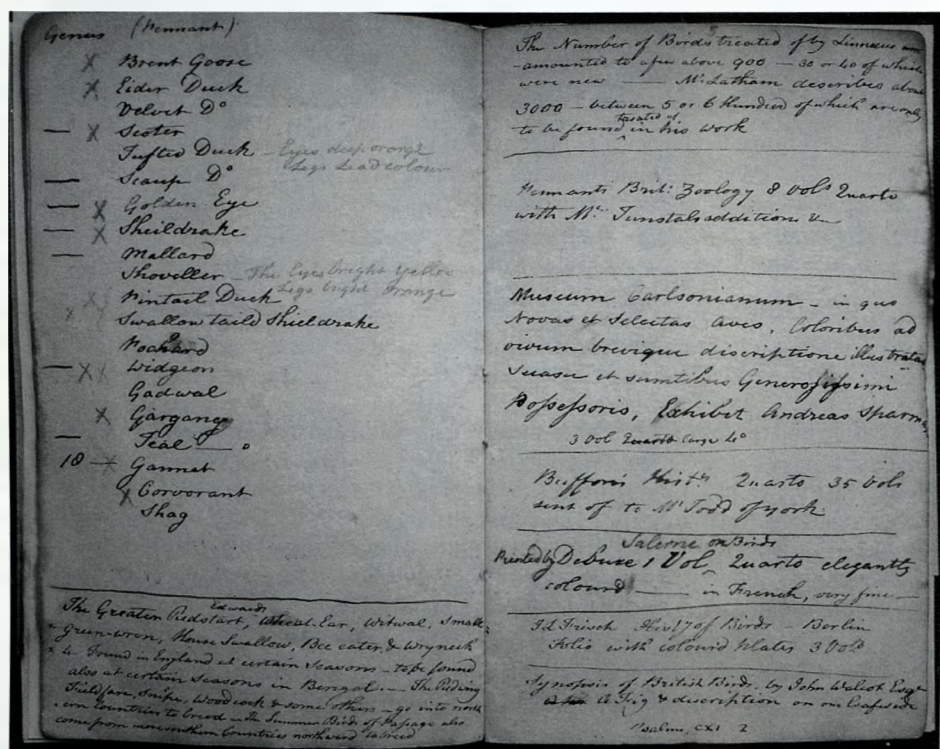 Genus (Pennant)
x Brent Goose
x Eider Duck
Velvet Do
— x Scoter
Tufted Duck — Eyes deep orange
Legs Lead colour
— Scaup Do
— x Golden Eye
— x Sheildrake
— Mallard
Shoveller — The Eyes bright yellow
Legs bright orange
x Pintail Duck
x Swallow taild Shieldrake
Pochard
— x x Widgeon
Gadwal
x Gargany
— Teal — o
10 — x Gannet
x Corvorant
Shag
Edwards
The Greater Redstart, Wheat Ear, Witwal, Small
green-wren, House Swallow, Bee eater & wryneck
x 4 Found in England at certain Seasons — to be found
also at certain Seasons in Bengal. — The Redwing
Fieldfare, Snipe, Woodcock & some others — go into north
ern Countries to breed — The Summer Birds of Passage also
come from more southern Countries northward to breed
The Number of Birds treated of by Linneus
amounted to a few above 900 — 30 or 40 of which
were new — Mr Latham describes about
3000 — between 5 or 6 Hundred of which are only
treated of
to be found in his work
Pennants Brit: Zoology 8 Vols Quarto
with Mr Tunstals additions &c
Museum Carlsonianum — in quo
Novas et Selectas Aves, Coloribus ad
vivum brevique discriptione illustratas
Suasu et sumtibus Generosissimi
Possessoris, Exhibet Andreas Sparrm
3 Vol Quarto large 4o
Buffon's Histy Quarto 35 Vols
sent of to Mr Todd of york
Salerne on Birds
Printed by Debure 1 Vol, Quarto elegantly
colourd — in French, very fine —
Id Frisch Histy of Birds — Berlin
Folio with colourd Plates 3 Vols
Synopsis of British Birds, by John Walcot Esqr
A Fig & discription on one Leafe side
Psalms, CXI 2